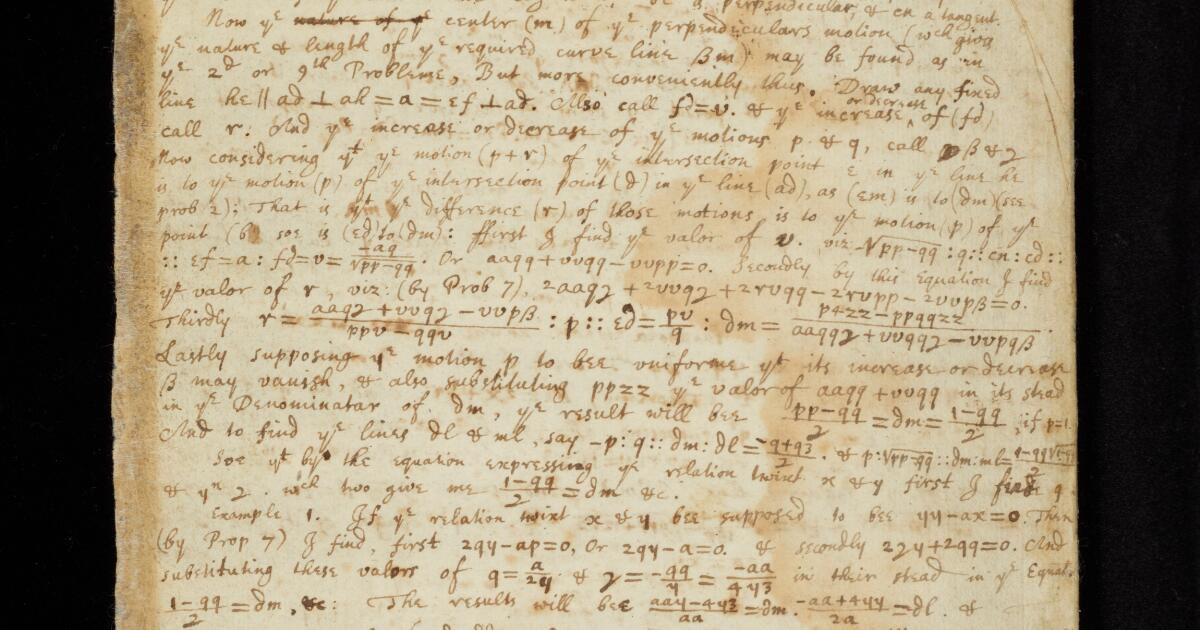 perpendicular, & cn a tangent.
Now yᵉ nature of yᵉ center (m) of yᵉ perpendiculars motion (wᶜʰ gives
yᵉ nature & length of yᵉ required curve line βm) may be found as in
yᵉ 2ᵈ or 9ᵗʰ Probleme, But more conveniently thus. Draw any fixed
line he || ad ⊥ ah = a = εf ⊥ ad. Also call fd=v. & yᵉ increase or decrease of (fd)
call r. And yᵉ increase or decrease of yᵉ motions p & q, call β & γ
Now considering yᵗ yᵉ motion (p+r) of yᵉ intersection point ε in yᵉ line he
is to yᵉ motion (p) of yᵉ intersection point (d) in yᵉ line (ad), as (εm) is to (dm) (see
prob 2); That is yᵗ yᵉ difference (r) of those motions is to yᵉ motion (p) of yᵉ
point (d) soe is (εd) to (dm): ffirst I find yᵉ valor of v. viz √pp−qq : q :: cn : cd ::
:: εf=a : fd=v= −aq/√pp−qq. Or aaqq+vvqq−vvpp=0. Secondly by this Equation I find
yᵉ valor of r, viz: (by Prob 7), 2aaqγ + 2vvqγ + 2rvqq − 2rvpp − 2vvpβ = 0.
Thirdly r = aaqγ + vvqγ − vvpβ/ppv − qqv : p :: εd = pv/q : dm = p4zz − ppqqzz/aaqqγ + vvqqγ − vvpqβ.
Lastly supposing yᵉ motion p to bee uniforme yᵗ its increase or decrease
β may vanish, & also substituting ppzz yᵉ valor of aaqq + vvqq in its stead
in yᵉ Denominator of dm, yᵉ result will bee pp−qq/γ = dm = 1−qq/γ, if p=1.
And to find yᵉ lines dl & ml, say −p : q :: dm : dl = −q+q3/γ. & p : √pp−qq :: dm : ml =
Soe yᵗ by the equation expressing yᵉ relation twixt x & y first I find q
& yⁿ γ. wᶜʰ two give me 1−qq/γ = dm &c.
Example 1. If yᵉ relation twixt x & y bee supposed to bee yy−ax=0. Then
(by Prop 7) I find, first 2qy−ap=0, Or 2qy−a=0. & secondly 2γy+2qq=0. And
substituting these valors of q= a/2y & γ= −qq/y = −aa/4y3 in their stead in yᵉ Equat
1−qq/γ = dm, &c: The results will bee aay−4y3/aa = dm. −aa+4yy/2a = dl. &